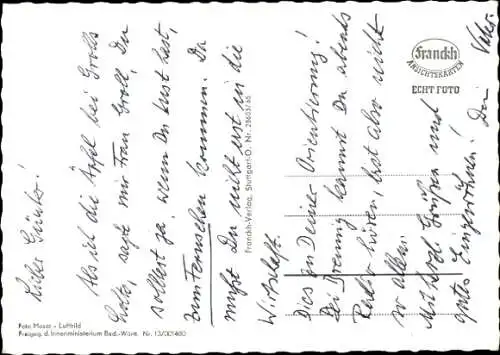 Lieber Günter!
Als ich die Äpfel bei Grolls
holte, sagte mir Frau Groll, Du
solltest ja, wenn Du Lust hast,
zum Fernsehen kommen. Da
mußt Du nicht erst in die
Wirtschaft.
Dies zu Deiner Orientierung!
Bei Brenning kannst Du abends
Radio hören, bist also nicht
so allein.
Mit herzl. Grüßen und
gutes Eingewöhnen! Dein Vater.
Franckh
ANSICHTSKARTEN
ECHT FOTO
Franckh-Verlag, Stuttgart-O. Nr. 28603/65
Foto Moser - Luftbild
Freigeg. d. Innenministerium Bad.-Württ. Nr.